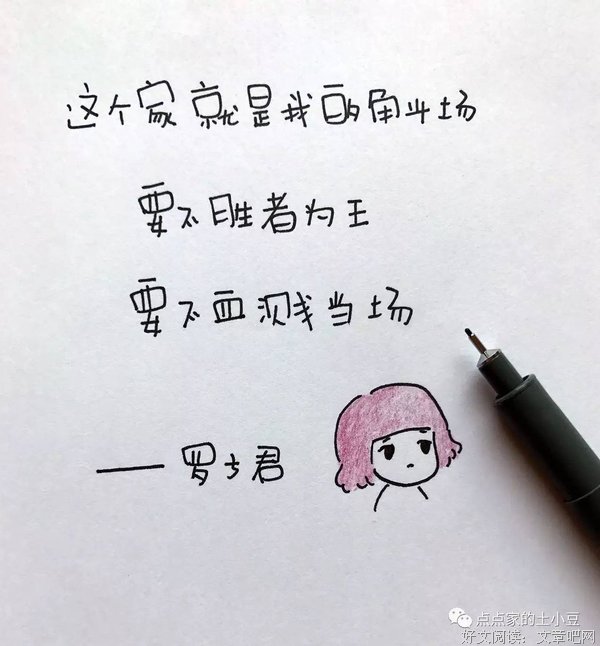 这个家就是我的角斗场
要不胜者为王
要不血溅当场
——罗子君
点点家的土小豆
好文阅读：文章吧网